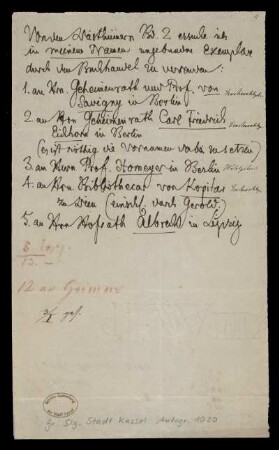 Von den Weisthümern Bd. 2 ersuche ich
in meinem Namen ungebundne Exemplar
durch den Buchhandel zu versenden:
1. an Hrn. Geheimenrath und Prof. von
Savigny in Berlin
2. an Hrn Geheimenrath Carl Friedrich
Eichhorn in Berlin
(es ist nöthig die Vornamen dabei zu setzen)
3. an Herrn Prof. Homeyer in Berlin
4. an Hrn Bibliothecar von Kopitar
zu Wien (durch Gerold)
5. an Hrn Hofrath Albrecht in Leipzig
12 an Grimm
Gr. Slg. Stadt Kassel Autogr. 1020